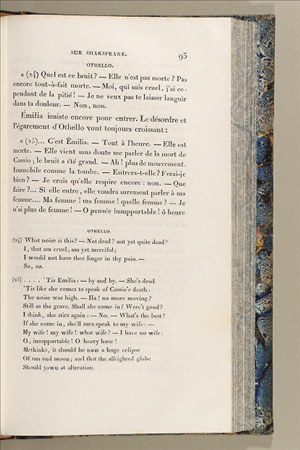 SUR SHAKSPEARE. 95
OTHELLO.
« (24) Quel est ce bruit? — Elle n'est pas morte? Pas
encore tout-à-fait morte. — Moi, qui suis cruel, j'ai ce-
pendant de la pitié! — Je ne veux pas te laisser languir
dans ta douleur. — Non, non.
Émilia insiste encore pour entrer. Le désordre et
l'égarement d'Othello vont toujours croissant:
« (25)... C'est Émilia. — Tout à l'heure. — Elle est
morte. — Elle vient sans doute me parler de la mort de
Cassio; le bruit a été grand. — Ah! plus de mouvement.
Immobile comme la tombe. — Entrera-t-elle? Ferai-je
bien? — Je crois qu'elle respire encore: non. — Que
faire?... Si elle entre, elle voudra surement parler à ma
femme.... Ma femme! ma femme! quelle femme? — Je
n'ai plus de femme! — O pensée insupportable! ô heure
OTHELLO.
(24) What noise is this? — Not dead? not yet quite dead?
I, that am cruel, am yet merciful;
I would not have thee linger in thy pain. —
So, so.
(25) .... 'Tis Emilia: — by and by. — She's dead.
'Tis like she comes to speak of Cassio's death:
The noise was high. — Ha! no more moving?
Still as the grave. Shall she come in? Were't good?
I think, she stirs again: — No. — What's the best?
If she come in, she'll sure speak to my wife: —
My wife! my wife! what wife? — I have no wife:
O, insupportable! O heavy hour!
Methinks, it should be now a huge eclipse
Of sun and moon; and that the affrighted globe
Should yawn at alteration.